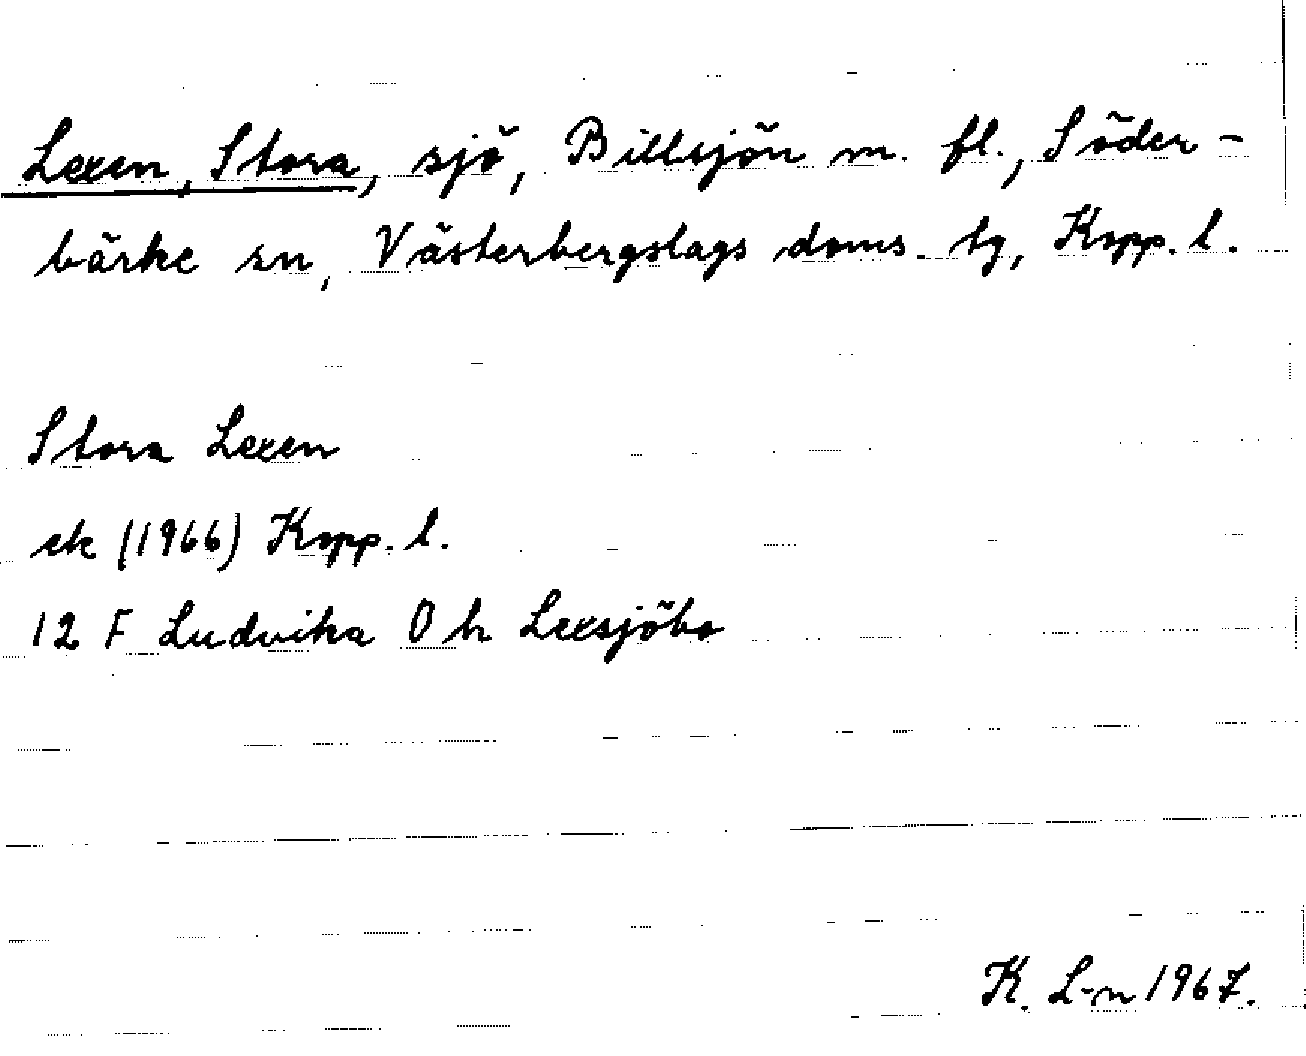 Lexen, Stora, sjö, Billsjön m. fl., Söder-
bärke sn, Västerbergslags doms. tg, Kopp. l.
Stora Lexen
ek (1966) Kopp. l.
12 F Ludvika O h Lexsjöbo
K. L-n 1967.